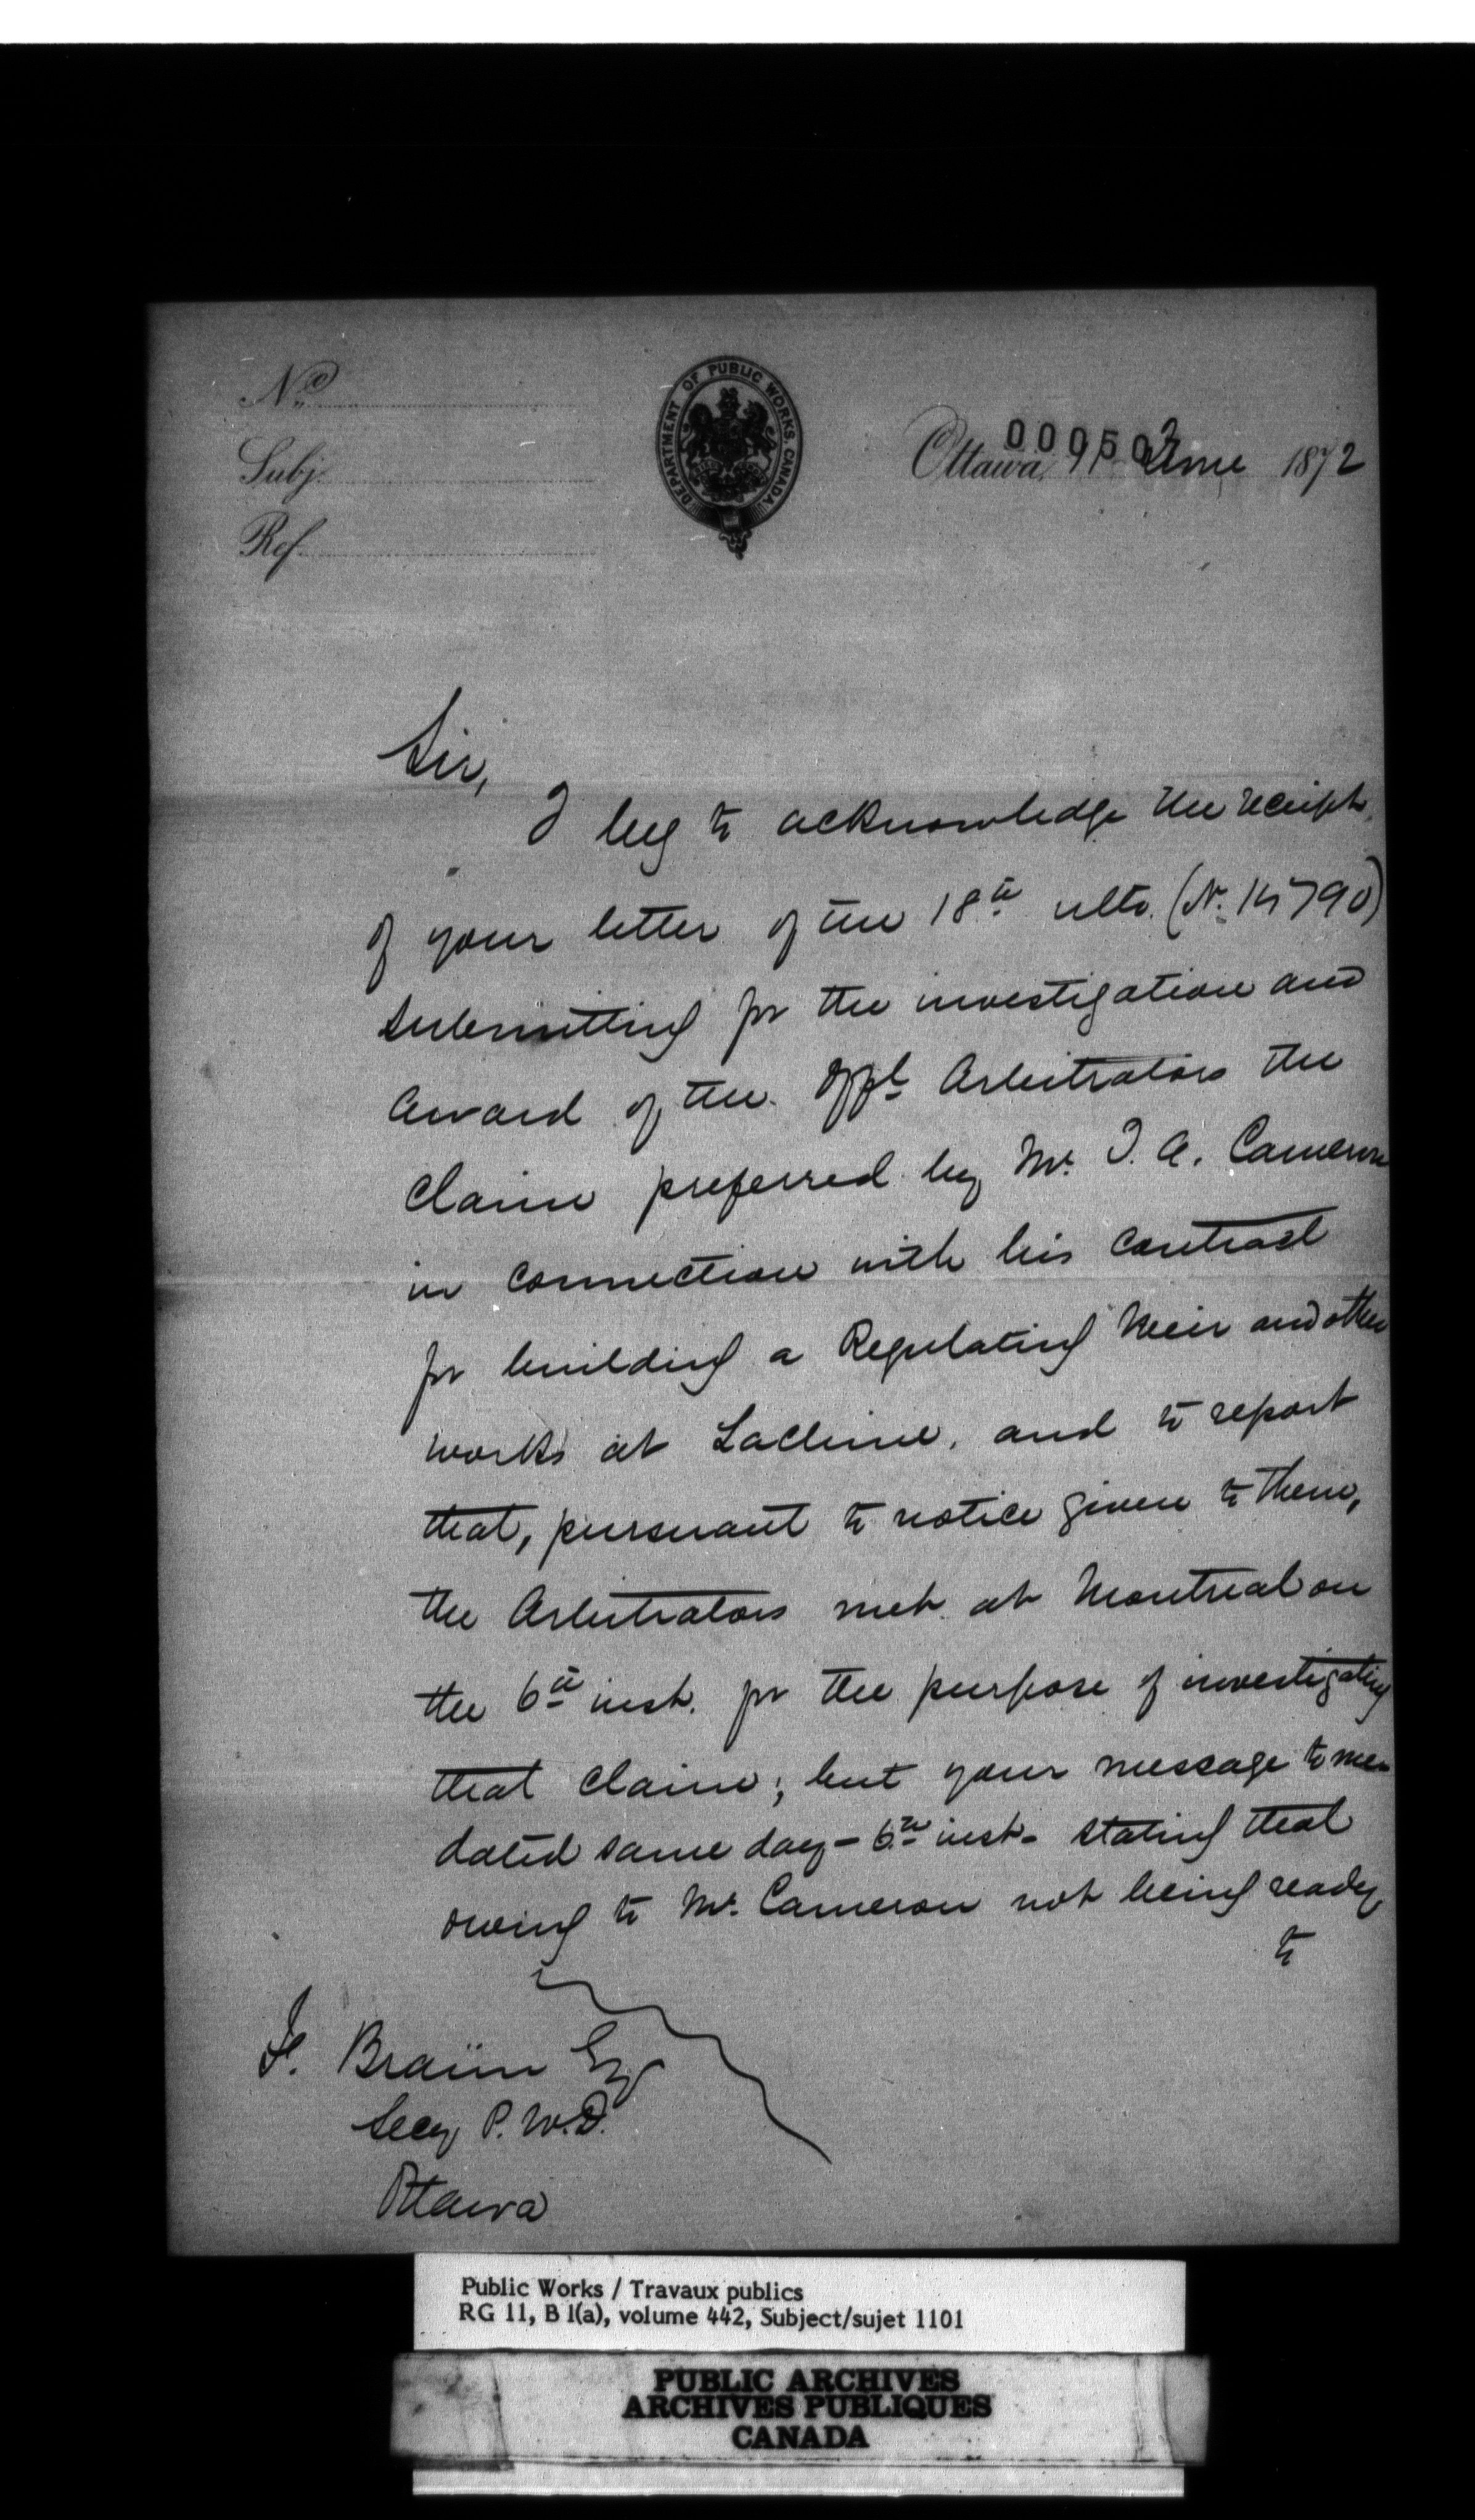 No.
Subj.
Ref.
DEPARTMENT OF PUBLIC WORKS. CANADA
Ottawa, June 1872
Sir,
I beg to acknowledge the receipt
of your letter of the 18th ulto. (No.
submitting for the investigation and
award of the Offl. Arbitrators the
claim preferred by Mr. J. A. Cameron
in connection with his contract
for building a Regulating Weir and other
works at Lachine, and to report
that, pursuant to notice given to them,
the Arbitrators met at Montreal on
the 6th inst. for the purpose of investigating
that claim; but your message to me
dated same day - 6th inst - stating that
owing to Mr. Cameron not being ready
to
F. Braün Esq
Secy P. W. D.
Ottawa
Public Works / Travaux publics
RG 11, B 1(a), volume 442, Subject/sujet 1101
PUBLIC ARCHIVES
ARCHIVES PUBLIQUES
CANADA